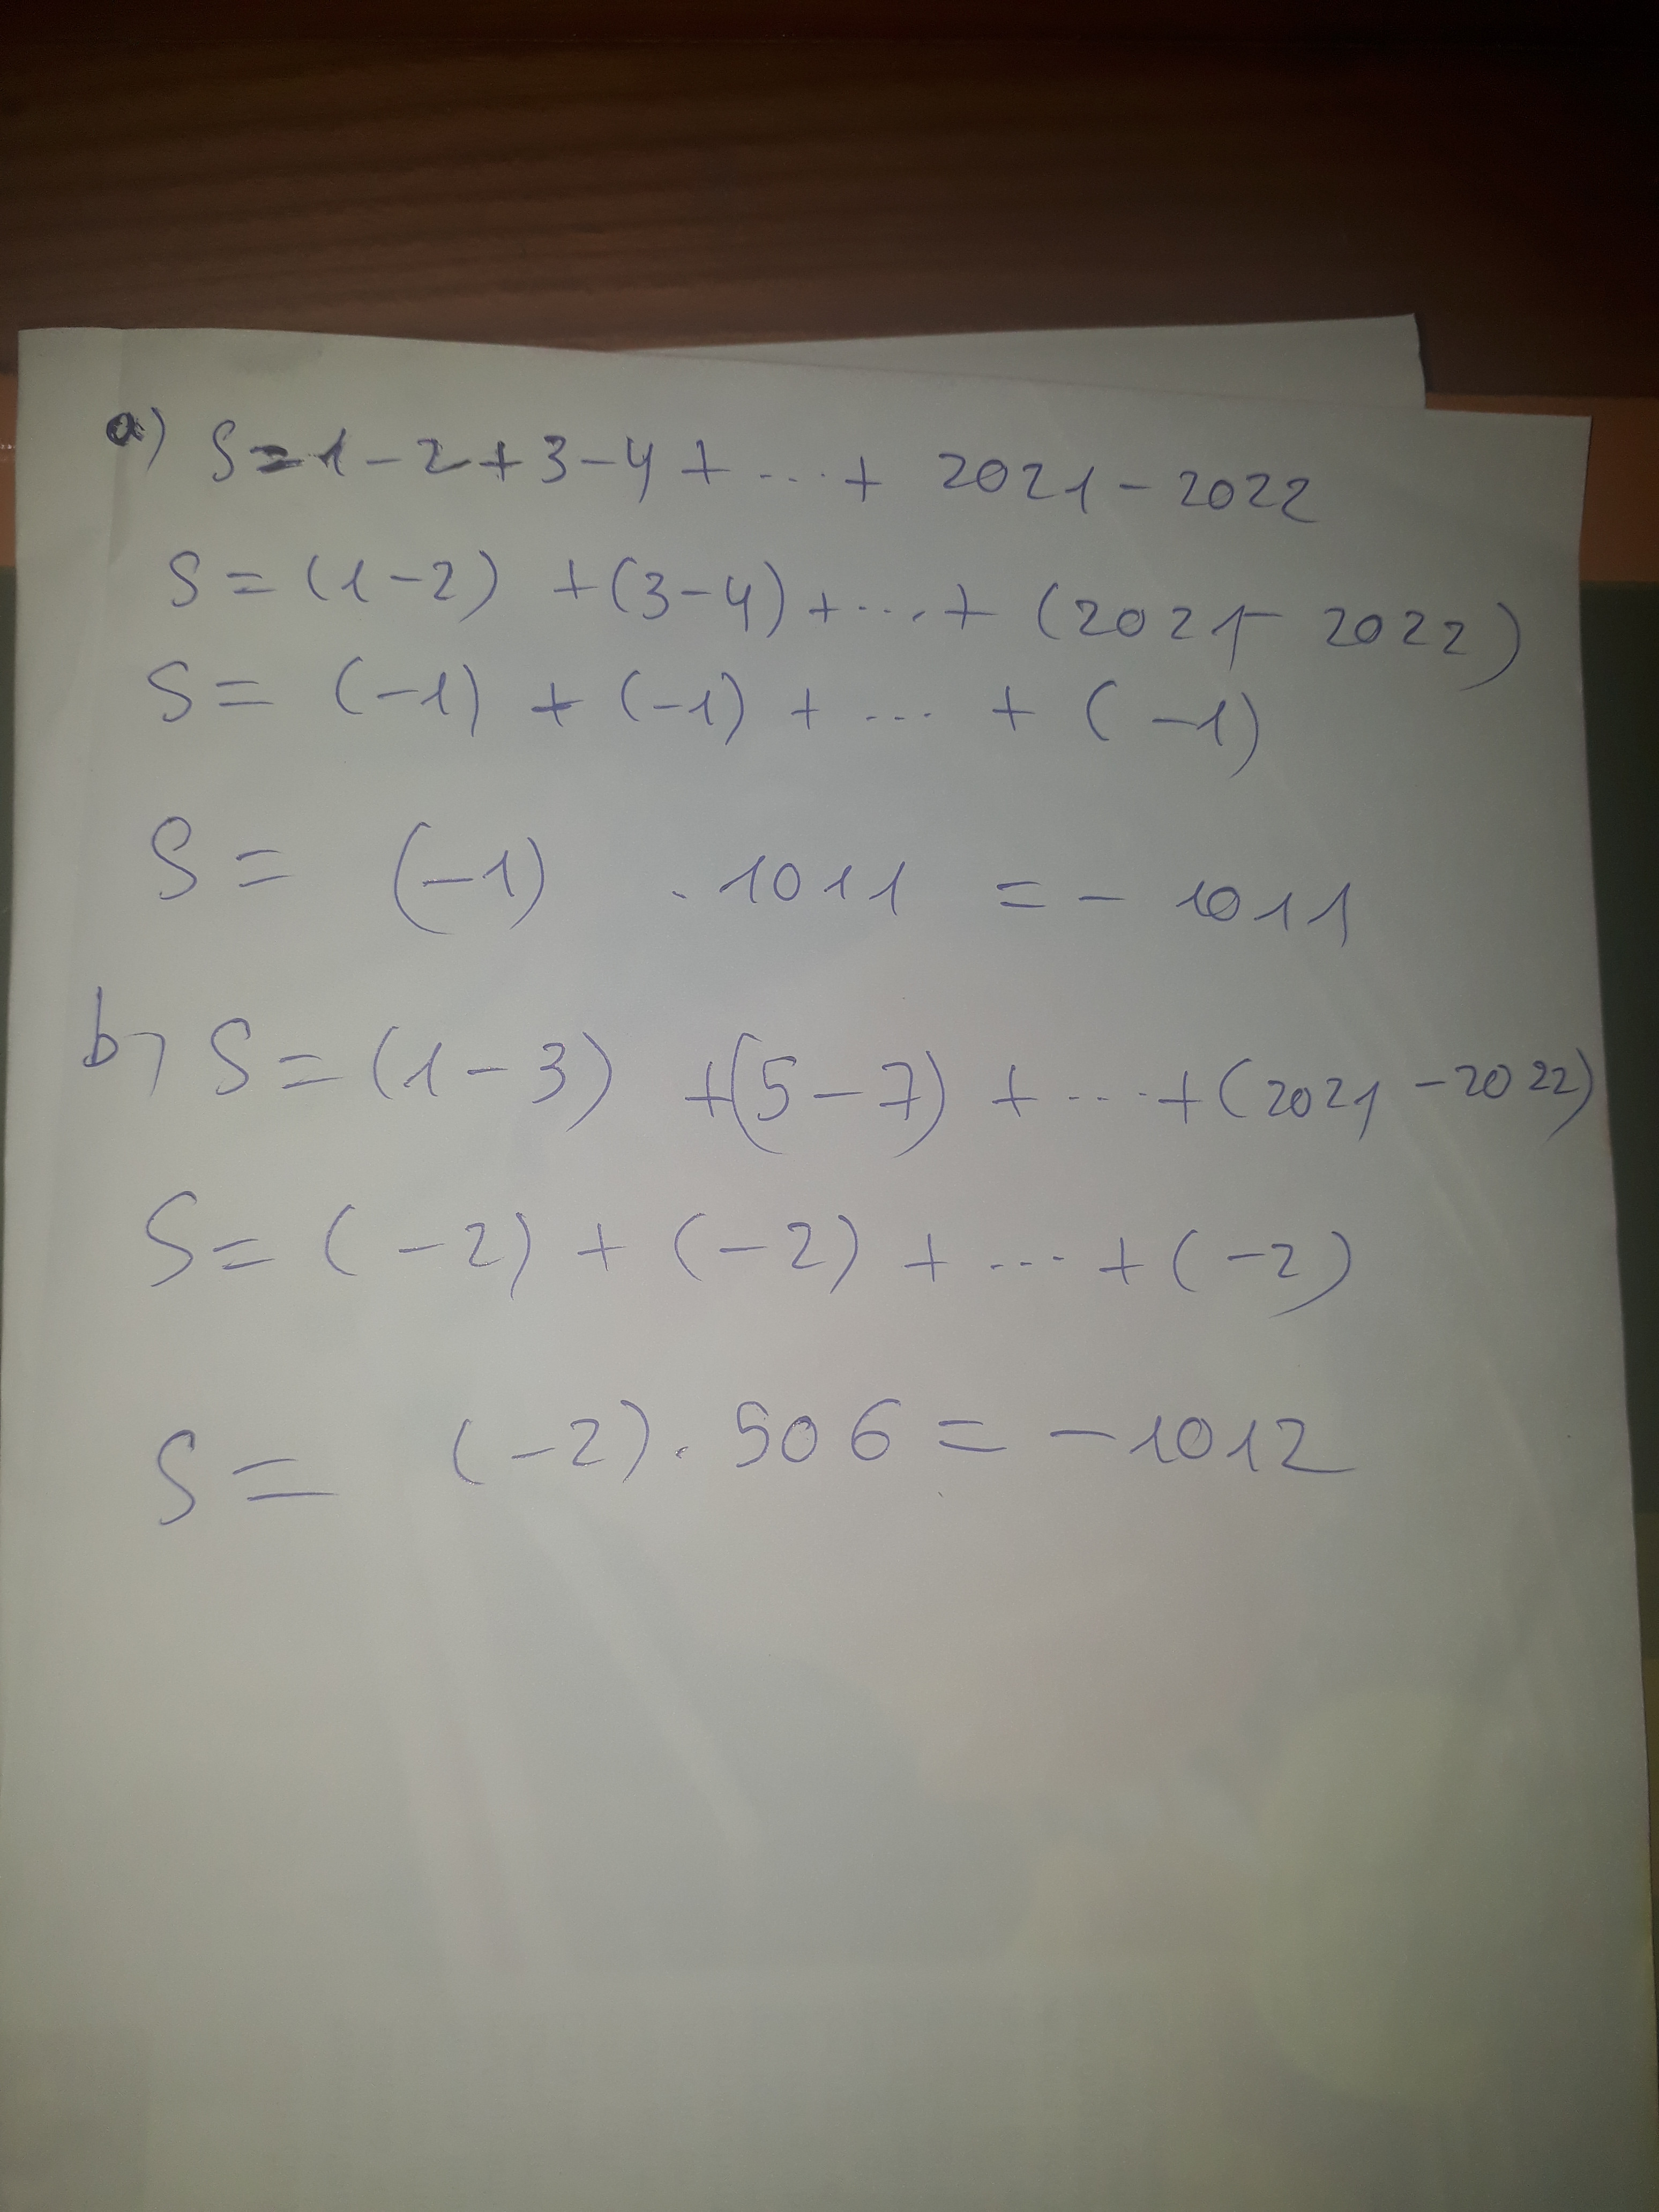 a) S=1-2+3-4+...+ 2021-2022
S=(1-2) +(3-4)+...+ (2021- 2022)
S= (-1) + (-1) + ... + (-1)
S= (-1) . 1011 = - 1011
b) S=(1-3) +(5-7) + ...+(2021-2022)
S=(-2)+(-2)+...+(-2)
S= (-2). 506 = -1012